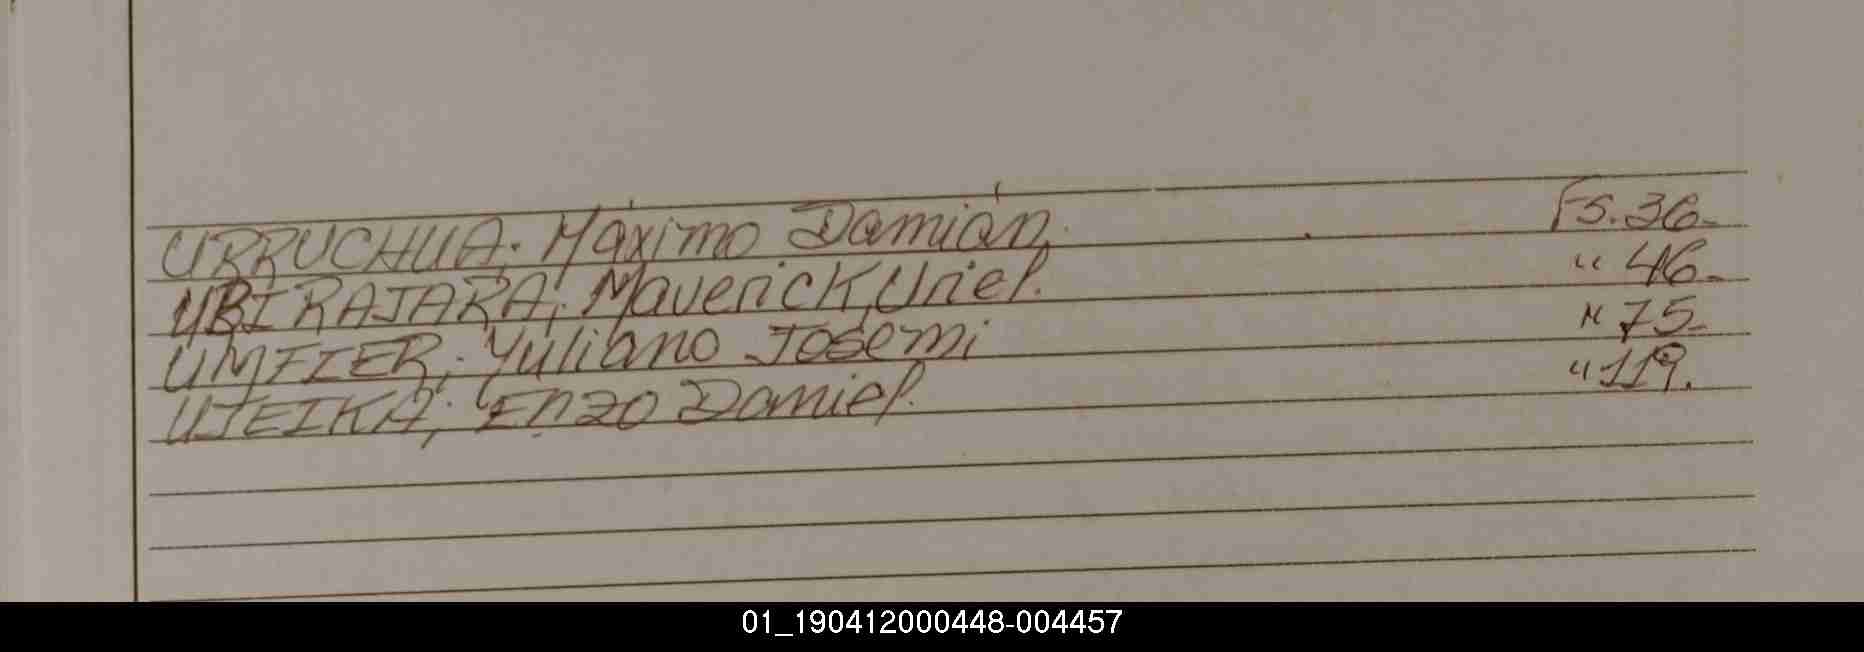 URRUCHUA; Máximo Damián, Fs. 36-
UBIRAJARA; Maverick, Uriel. " 46-
UMFIER; Yuliano Josemi " 75-
UJEIKA; Enzo Daniel. " 119.
01_190412000448-004457